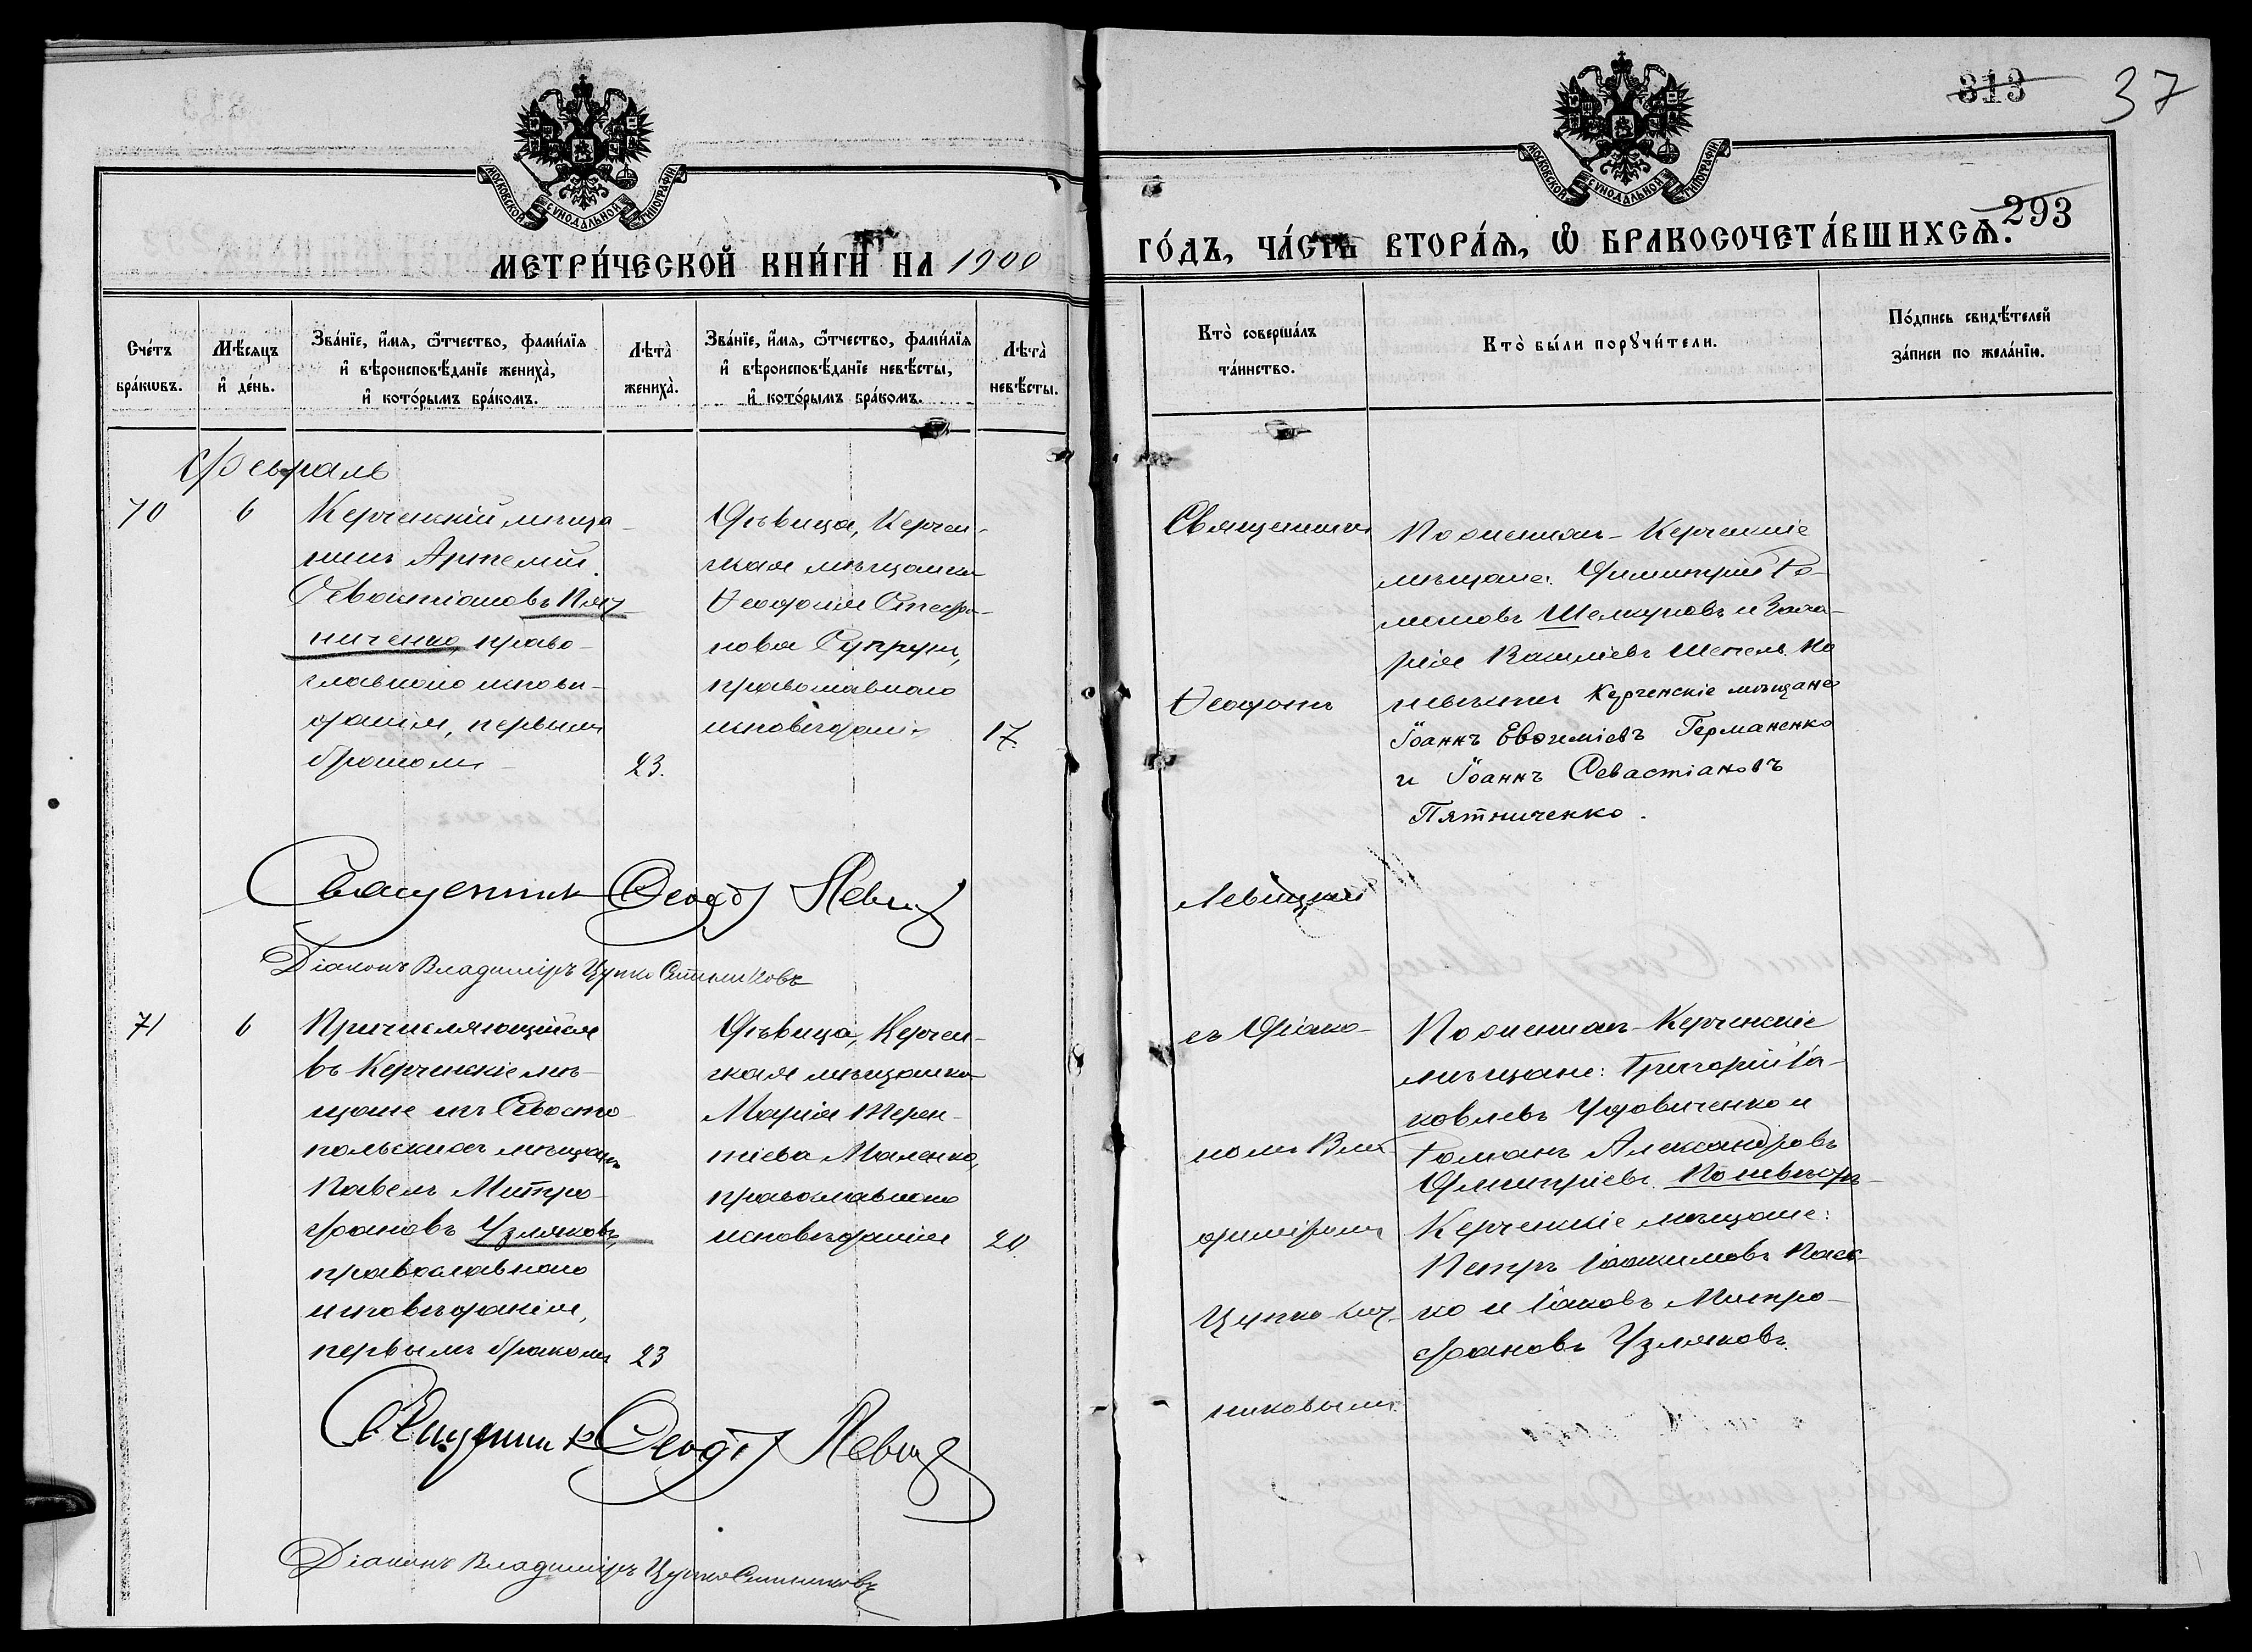 313
37
293
МОСКОВСКОЙ СѴНОДАЛЬНОЙ ТИПОГРАФІИ
МОСКОВСКОЙ СѴНОДАЛЬНОЙ ТИПОГРАФІИ
МЕТРИ́ЧЕСКОЙ КНИ́ГИ НА 1900
ГО́ДЪ, ЧА́СТЬ ВТОРА́Я, Ѡ БРАКОСОЧЕТА́ВШИХСЯ.
Сче́тъ бра́кѡвъ.
Мѣ́сяцъ и҆ де́нь.
Зва́нїе, и҆́мя, ѻ҆́тчество, фами́лїя и҆ вѣроисповѣ́данїе жениха̀, и҆ кото́рымъ бра́комъ.
Лѣта̀ жениха̀.
Зва́нїе, и҆́мя, ѻ҆́тчество, фами́лїя и҆ вѣроисповѣ́данїе невѣ́сты, и҆ кото́рымъ бра́комъ.
Лѣта̀ невѣ́сты.
Кто̀ соверша́лъ та́инство.
Кто̀ бы́ли порꙋчи́тели.
По́дпись свидѣ́телей за́писи по жела́нїю.
Февраль
70
6
Керченскій мѣща-
нинъ Артемій
Севастіановъ Пят-
ниченко, право-
славнаго исповѣ-
данія, первымъ
бракомъ
23.
Дѣвица, Керчен-
ская мѣщанка
Ѳеодосія Стефа-
нова Супрунъ,
православнаго
исповѣданія
17
Священникъ
Ѳеодотъ
Левицкій
По женихѣ - Керченскіе
мѣщане: Димитрій Ро-
мановъ Шелкуновъ и Заха-
рія Василіевъ Шепель. По
невѣстѣ Керченскіе мѣщане
Іоаннъ Евѳиміевъ Германенко
и Іоаннъ Севастіановъ
Пятниченко.
Священникъ Ѳеодотъ Левицкій
Діаконъ Владиміръ Цупко-Ситниковъ
71
6
Причисляющійся
въ Керченскіе мѣ-
щане изъ Севасто-
польскихъ мѣщанъ
Павелъ Митро-
фановъ Узляковъ,
православнаго
исповѣданія,
первымъ бракомъ
23
Дѣвица, Керчен-
ская мѣщанка
Марія Терен-
тіева Маленко,
православнаго
исповѣданія
20
съ Діако-
номъ Вла-
диміромъ
Цупко-Сит-
никовымъ.
По женихѣ - Керченскіе
мѣщане: Григорій Іа-
ковлевъ Удовиченко и
Романъ Александровъ
Дмитріевъ. По невѣстѣ -
Керченскіе мѣщане:
Петръ Іоакимовъ
и Іаковъ Митро-
фановъ Узляковъ.
Священникъ Ѳеодотъ Левицкій
Діаконъ Владиміръ Цупко-Ситниковъ